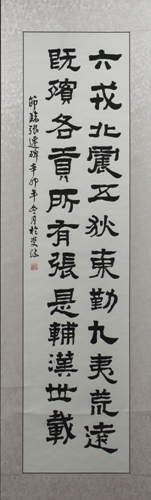 六戎北震五狄東勤九夷荒遠
既殯各貢所有張是輔漢世載
節臨張遷碑辛卯年冬月於